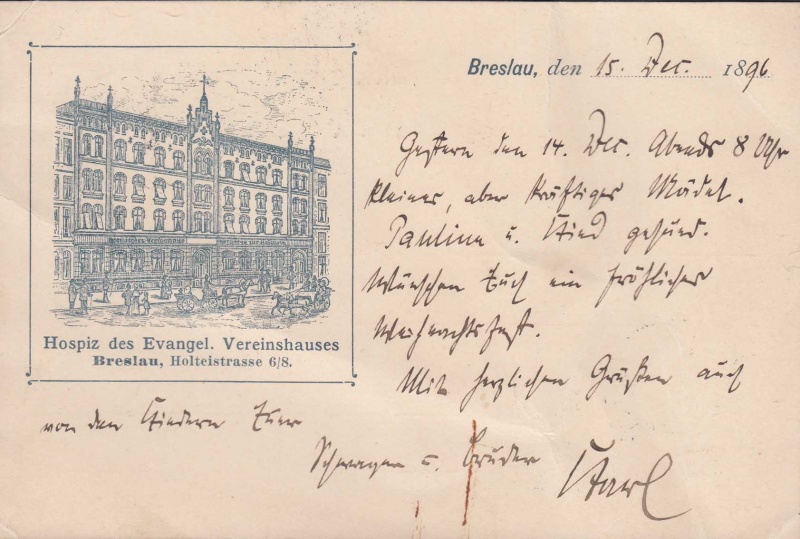 Breslau, den 15. Dec. 1896
Gestern den 14. Dec. Abends 8 Uhr
kleines, aber kräftiges Mädel.
Pauline u. Kind gesund.
Wünschen Euch ein fröhliches
Weihnachtsfest.
Mit herzlichen Grüßen auch
von den Kindern Euer
Schwager u. Bruder
Karl
Hospiz des Evangel. Vereinshauses
Breslau, Holteistrasse 6/8.